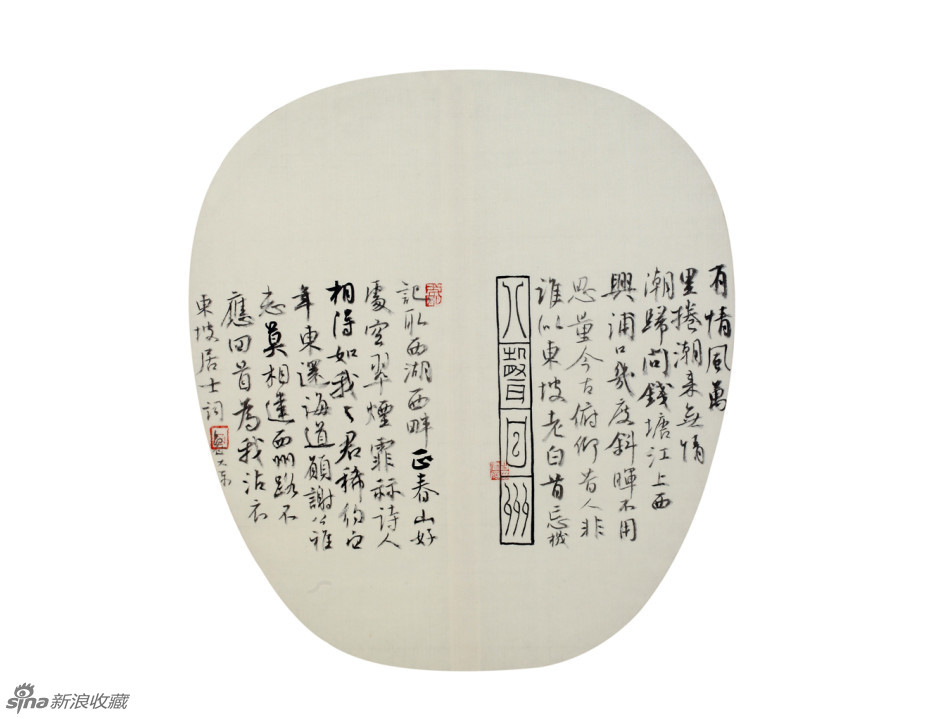 有情風萬
里捲潮来无情
潮歸问錢塘江上西
興浦口幾度斜暉不用
思量今古俯仰昔人非
誰似東坡老白首忘機
八聲甘州
記取西湖西畔正春山好
處空翠煙霏祘诗人
相得如我々君稀約它
年東還海道願謝公雅
志莫相違西州路不
應回首為我沾衣
東坡居士詞
sina新浪收藏